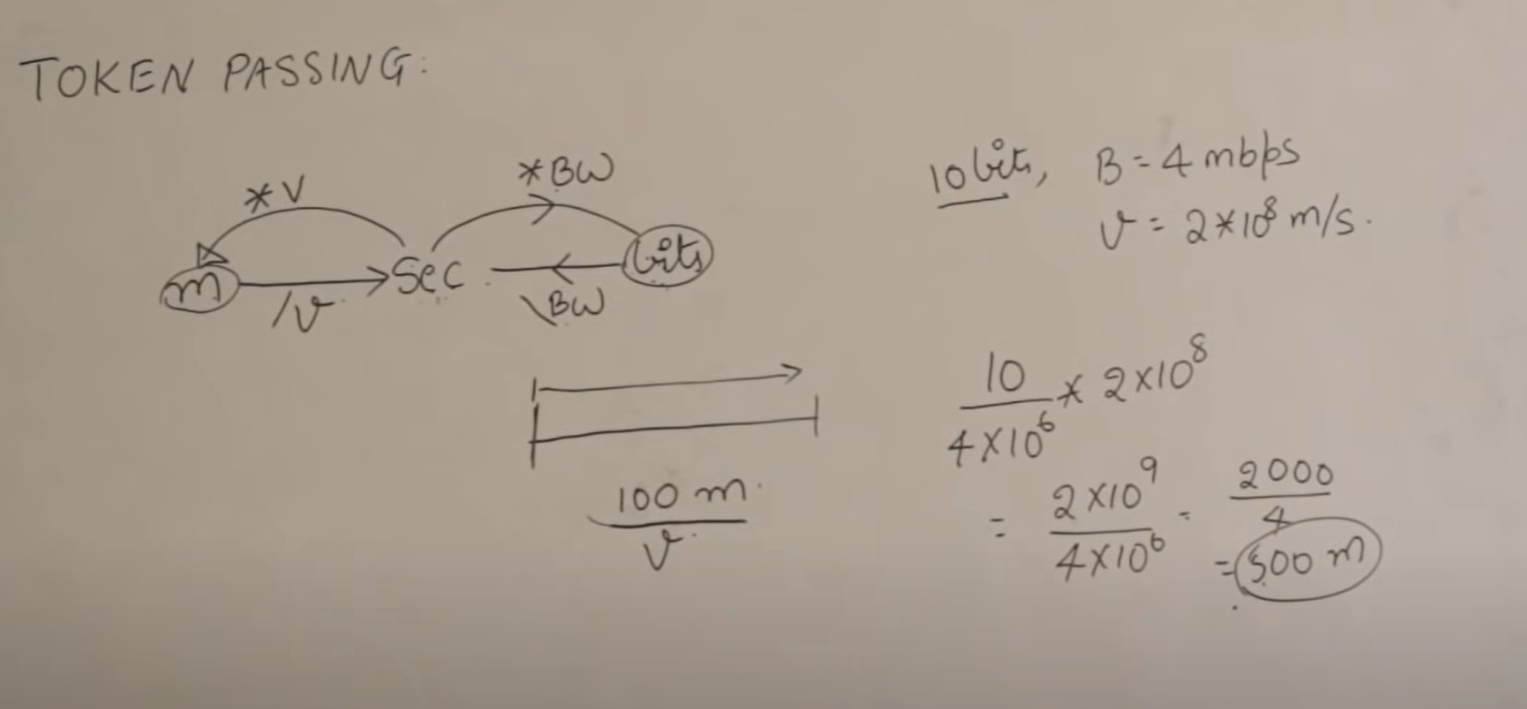 TOKEN PASSING:
*V
*BW
m
Sec
bits
/v
\BW
100 m
v
10 bits, B = 4 mbps
v = 2*10⁸ m/s.
10
4×10⁶
* 2×10⁸
= 2×10⁹
4×10⁶
= 2000
4
= 500 m